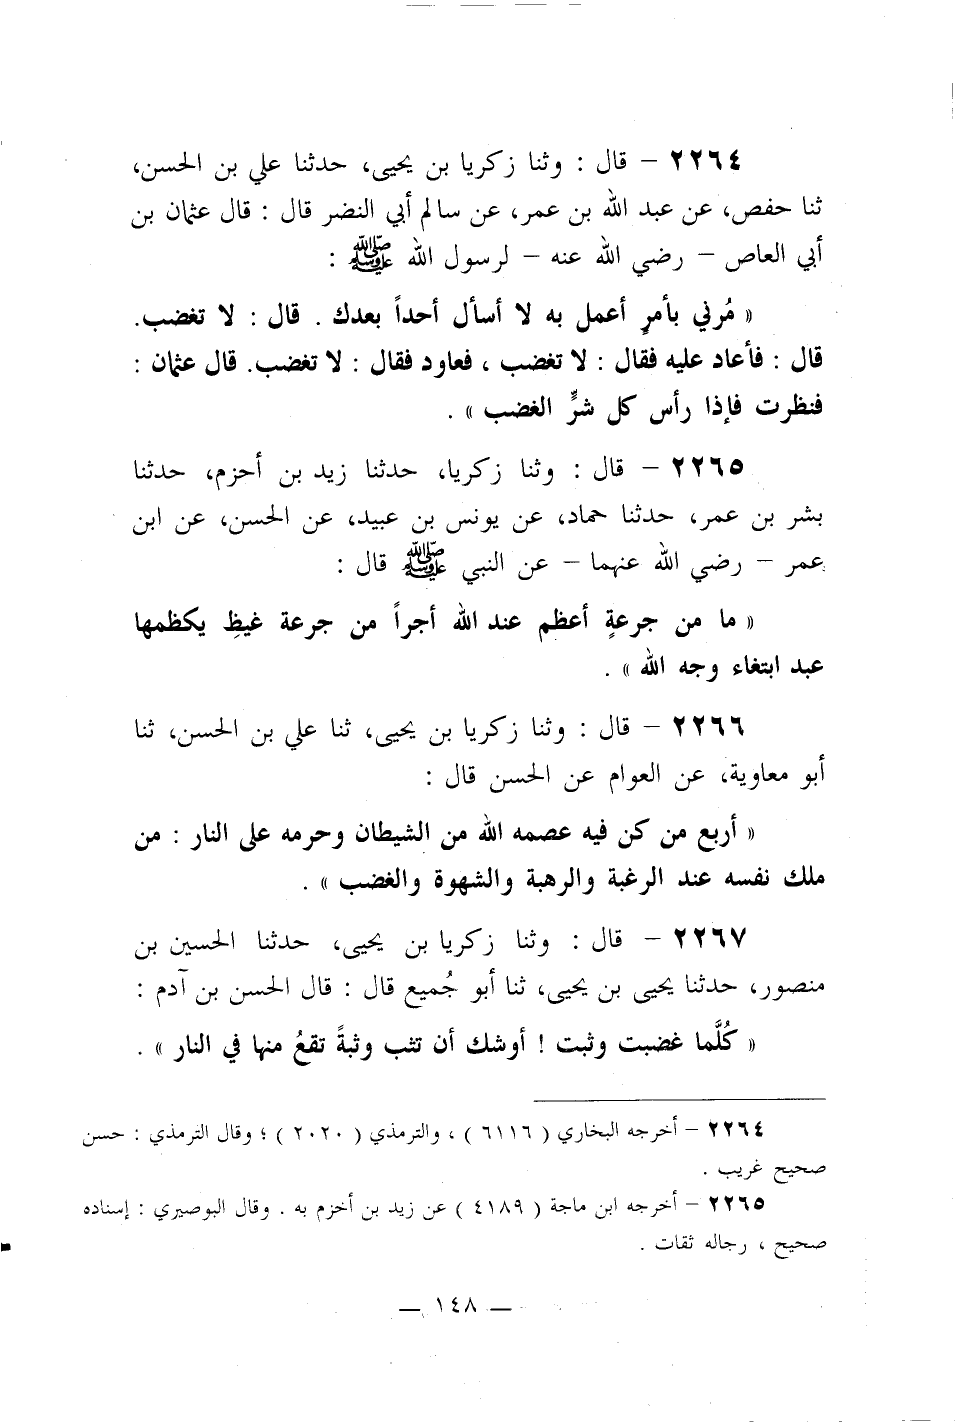 ٢٢٦٤ – قال : وثنا زكريا بن يحيى، حدثنا علي بن الحسن،
ثنا حفص، عن عبد الله بن عمر، عن سالم أبي النضر قال : قال عثمان بن
أبي العاص – رضي الله عنه – لرسول الله ﷺ :
« مُرني بأمرٍ أعمل به لا أسأل أحداً بعدك . قال : لا تغضب.
قال : فأعاد عليه فقال : لا تغضب ، فعاود فقال : لا تغضب. قال عثمان :
فنظرت فإذا رأس كل شرٍّ الغضب » .
٢٢٦٥ – قال : وثنا زكريا، حدثنا زيد بن أحزم، حدثنا
بشر بن عمر، حدثنا حماد، عن يونس بن عبيد، عن الحسن، عن ابن
عمر – رضي الله عنهما – عن النبي ﷺ قال :
« ما من جرعةٍ أعظم عند الله أجراً من جرعة غيظٍ يكظمها
عبد ابتغاء وجه الله » .
٢٢٦٦ – قال : وثنا زكريا بن يحيى، ثنا علي بن الحسن، ثنا
أبو معاوية، عن العوام عن الحسن قال :
« أربع من كن فيه عصمه الله من الشيطان وحرمه على النار : من
ملك نفسه عند الرغبة والرهبة والشهوة والغضب » .
٢٢٦٧ – قال : وثنا زكريا بن يحيى، حدثنا الحسين بن
منصور، حدثنا يحيى بن يحيى، ثنا أبو جُميع قال : قال الحسن بن آدم :
« كُلَّما غضبت وثبت ! أوشك أن تثب وثبةً تقعُ منها في النار » .
٢٢٦٤ – أخرجه البخاري ( ٦١١٦ ) ، والترمذي ( ٢٠٢٠ ) ؛ وقال الترمذي : حسن
صحيح غريب .
٢٢٦٥ – أخرجه ابن ماجة ( ٤١٨٩ ) عن زيد بن أخزم به . وقال البوصيري : إسناده
صحيح ، رجاله ثقات .
— ١٤٨ —